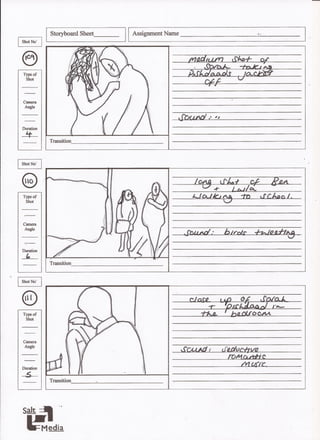 Storyboard Sheet
Assignment Name
Shot No'
109
Type of
Shot
Camera
Angle
Duration
4
Transition
medium shot of
Sorah taking
Pishdaads jacket
off
Sound: "
Shot No'
110
Type of
Shot
Camera
Angle
Duration
6
Transition
long shot of Ben
+ Layla
walking to school.
Sound: birds tweeting.
Shot No'
111
Type of
Shot
Camera
Angle
Duration
5
Transition
close up of Sorah
+ Pishdaad in
the bedroom
Sound: seductive
romantic
music.
Salt
Media